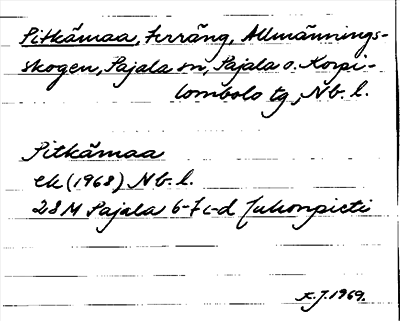 Pitkämaa, terräng, Allmännings-
skogen, Pajala sn, Pajala o. Korpi-
lombolo tg, Nb. l.
Pitkämaa
ek (1968) Nb. l.
28M Pajala 6-7 c-d Juhonpieti
1969.